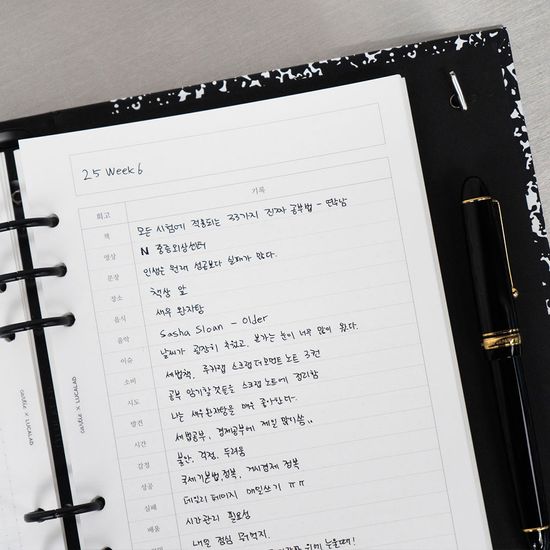 25 Week 6
회고 기록
책 모든 시험에 적용되는 33가지 진짜 공부법 - 연학남
영상 N 중증외상센터
문장 인생은 원래 성공보다 실패가 많다.
장소 책상 앞
음식 새우 완자탕
음악 Sasha Sloan - Older
이슈 날씨가 굉장히 추웠고, 본가는 눈이 너무 많이 왔다.
소비 세법책, 루카랩 스크랩 더 모먼트 노트 3권
시도 공부 암기할 것들을 스크랩 노트에 정리함
발견 나는 새우완자탕을 매우 좋아한다.
시간 세법공부, 경제공부에 제일 많이 씀
감정 불안, 걱정, 두려움
성공 국제기본법 정복, 거시경제 정복
실패 데일리 페이지 매일쓰기 ㅠㅠ
배움 시간관리 필요성
내일 점심 뭐 먹지.
누울때!
LUCALAB